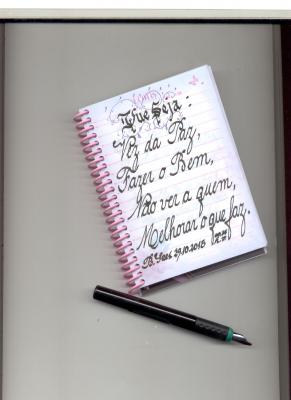 Que Seja:
Voz da Paz,
Fazer o Bem,
Não ver a quem,
Melhorar o que faz.
29.10.2015